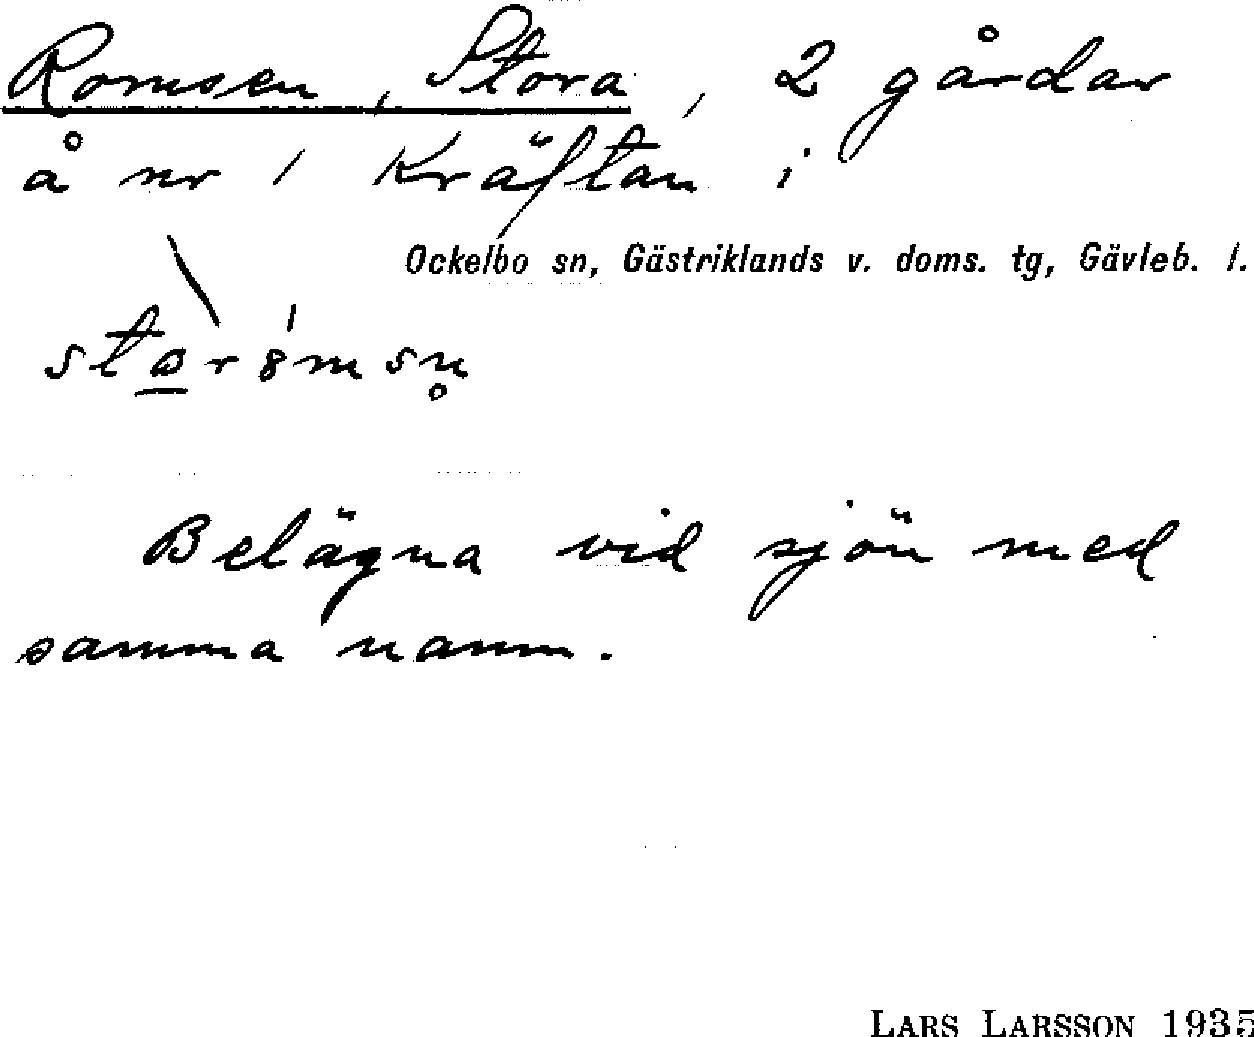 Romsen, Stora, 2 gårdar
å nr 1 Kräftan i
Ockelbo sn, Gästriklands v. doms. tg, Gävleb. l.
Belägna vid sjön med
samma namn.
LARS LARSSON 1935